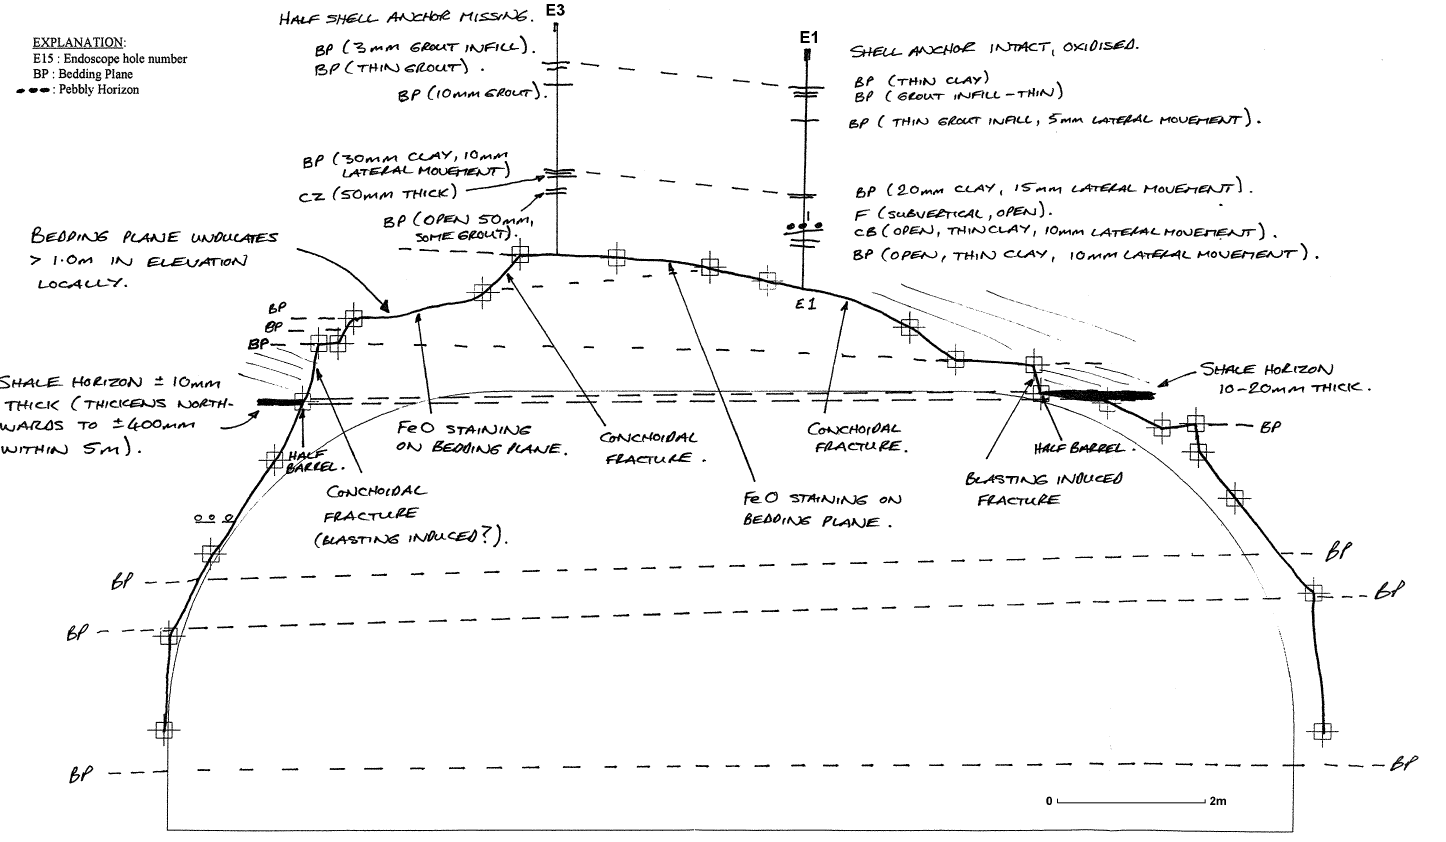 EXPLANATION:
E15 : Endoscope hole number
BP : Bedding Plane
: Pebbly Horizon
HALF SHELL ANCHOR MISSING.
E3
BP (3mm GROUT INFILL).
BP (THIN GROUT).
BP (10mm GROUT).
BP (30mm CLAY, 10mm
LATERAL MOVEMENT)
CZ (50mm THICK)
BP (OPEN 50mm,
SOME GROUT).
E1
SHELL ANCHOR INTACT, OXIDISED.
BP (THIN CLAY)
BP (GROUT INFILL-THIN)
BP (THIN GROUT INFILL, 5mm LATERAL MOVEMENT).
BP (20mm CLAY, 15mm LATERAL MOVEMENT).
F (SUBVERTICAL, OPEN).
CB (OPEN, THIN CLAY, 10mm LATERAL MOVEMENT).
BP (OPEN, THIN CLAY, 10mm LATERAL MOVEMENT).
BEDDING PLANE UNDULATES
> 1.0m IN ELEVATION
LOCALLY.
E1
BP
BP
BP
SHALE HORIZON ± 10mm
THICK (THICKENS NORTH-
WARDS TO ± 400mm
WITHIN 5m).
SHALE HORIZON
10-20mm THICK.
BP
HALF
BARREL.
FeO STAINING
ON BEDDING PLANE.
CONCHOIDAL
FRACTURE.
CONCHOIDAL
FRACTURE.
HALF BARREL.
CONCHOIDAL
FRACTURE
(BLASTING INDUCED?).
FeO STAINING ON
BEDDING PLANE.
BLASTING INDUCED
FRACTURE
BP
BP
BP
BP
BP
BP
0
2m